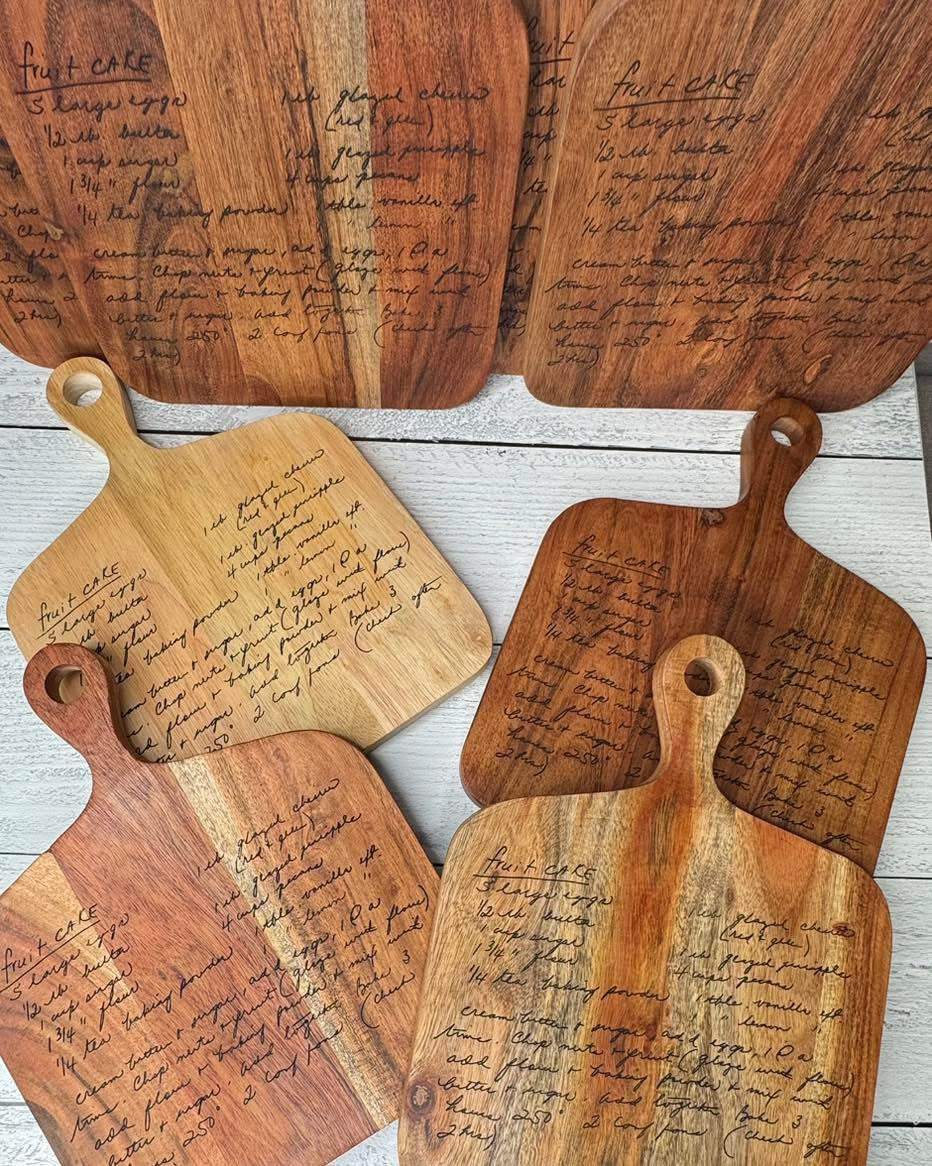 fruit CAKE
5 large eggs 1 lb glazed cherries
1/2 lb butter (red & green)
1 cup sugar 1 lb glazed pineapple
1 3/4 " flour 4 cups pecans
1/4 tea baking powder 1 tble vanilla eft.
" lemon "
cream butter & sugar, add eggs, 1 @ a
time. Chop nuts & fruit (glaze with flour)
add flour & baking powder & mix with
butter & sugar. add together Bake 3
hours 250° 2 loaf pans (check after
2 hrs)
fruit CAKE
5 large eggs
1/2 lb butter
1 cup sugar
1 3/4 " flour 4 cups pecans
1/4 tea baking powder 1 tble vanilla
" lemon
cream butter & sugar, add eggs, 1 @ a
time. Chop nuts & fruit (glaze with flour)
add flour & baking powder & mix with
butter & sugar. add together Bake 3
hours 250° 2 loaf pans (check after
2 hrs)
fruit CAKE
5 large eggs 1 lb glazed cherries
lb butter (red & green)
sugar 1 lb glazed pineapple
" flour 4 cups pecans
baking powder 1 tble vanilla eft.
" lemon "
butter & sugar, add eggs, 1 @ a
Chop nuts & fruit (glaze with flour)
flour & baking powder & mix with
& sugar. add together Bake 3
250° 2 loaf pans (check after
fruit CAKE
5 large eggs 1 lb glazed cherries
1/2 lb butter (red & green)
1 cup sugar glazed pineapple
1 3/4 " flour pecans
1/4 tea baking vanilla eft.
lemon "
cream butter eggs, 1 @ a
time. Chop (glaze with flour)
add flour & mix with
butter & Bake 3
hours 250° 2 (check after
2 hrs)
fruit CAKE
5 large eggs 1 lb glazed cherries
1/2 lb butter (red & green)
1 cup sugar 1 lb glazed pineapple
1 3/4 " flour 4 cups pecans
1/4 tea baking powder 1 tble vanilla eft.
" lemon "
cream butter & sugar, add eggs, 1 @ a
time. Chop nuts & fruit (glaze with flour)
add flour & baking powder & mix with
butter & sugar. add together Bake 3
250° 2 loaf pans (check
fruit CAKE
5 large eggs 1 lb glazed cherries
1/2 lb butter (red & green)
1 cup sugar 1 lb glazed pineapple
1 3/4 " flour 4 cups pecans
1/4 tea baking powder 1 tble vanilla eft.
" lemon "
cream butter & sugar, add eggs, 1 @ a
time. Chop nuts & fruit (glaze with flour)
add flour & baking powder & mix with
butter & sugar. add together Bake 3
hours 250° 2 loaf pans (check after
2 hrs)